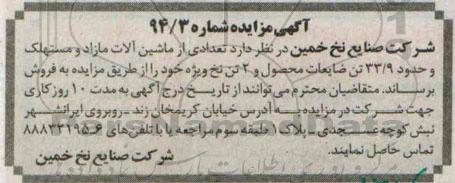 آگهی مزایده شماره ۹۴/۳
شرکت صنایع نخ خمین در نظر دارد تعدادی از ماشین آلات مازاد و مستهلک
و حدود ۳۳/۹ تن ضایعات محصول و ۲ تن نخ ویژه خود را از طریق مزایده به فروش
برساند. متقاضیان محترم می توانند از تاریخ درج آگهی به مدت ۱۰ روز کاری
جهت شرکت در مزایده به آدرس خیابان کریمخان زند - روبروی ایرانشهر
نبش کوچه عسجدی - پلاک ۱ طبقه سوم مراجعه یا با تلفن های ۶-۸۸۸۳۳۱۹۵
تماس حاصل نمایند.
شرکت صنایع نخ خمین